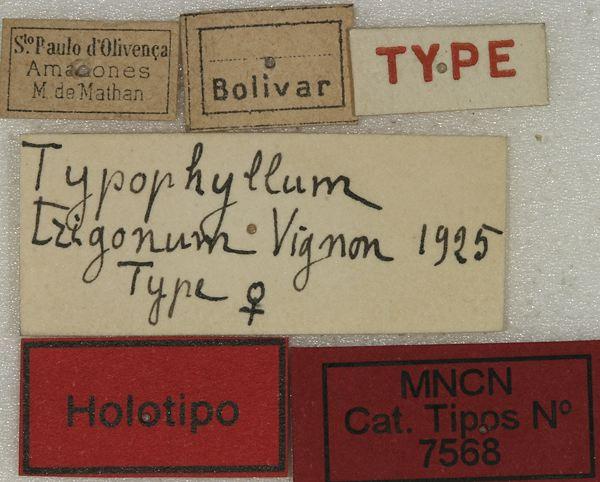 Sto Paulo d'Olivença
Amazones
M. de Mathan
Bolivar
TYPE
Typophyllum
trigonum Vignon 1925
Type ♀
Holotipo
MNCN
Cat. Tipos Nº
7568